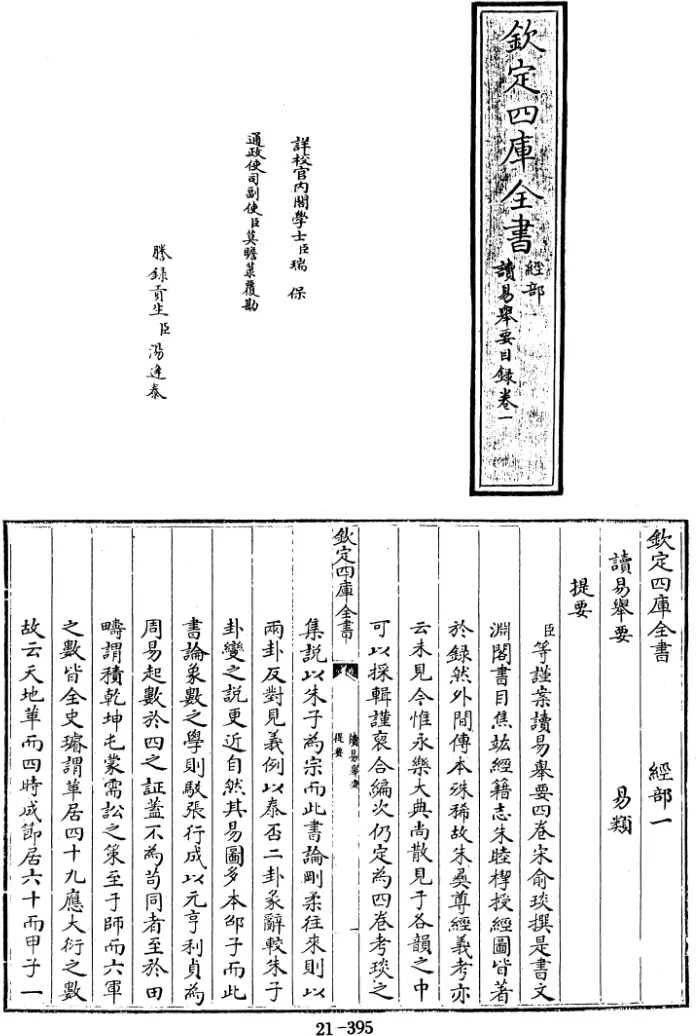 欽定四庫全書
經部一
讀易舉要目錄卷一
詳校官內閣學士臣瑞保
通政使司副使臣莫瞻菉覆勘
謄錄貢生臣湯逢泰
欽定四庫全書 經部一
讀易舉要 易類
提要
臣等謹案讀易舉要四卷宋俞琰撰是書文
淵閣書目焦竑經籍志朱睦㮮授經圖皆著
於錄然外間傳本殊稀故朱彝尊經義考亦
云未見今惟永樂大典尚散見于各韻之中
可以採輯謹裒合編次仍定為四卷考琰之
欽定四庫全書
讀易舉要
提要
一
集説以朱子為宗而此書論剛柔往來則以
兩卦反對見義例以泰否二卦彖辭較朱子
卦變之説更近自然其易圖多本邵子而此
書論象數之學則駁張行成以元亨利貞為
周易起數於四之証蓋不為苟同者至於田
疇謂積乾坤屯蒙需訟之策至于師而六軍
之數皆全史璿謂革居四十九應大衍之數
故云天地革而四時成節居六十而甲子一
21-395